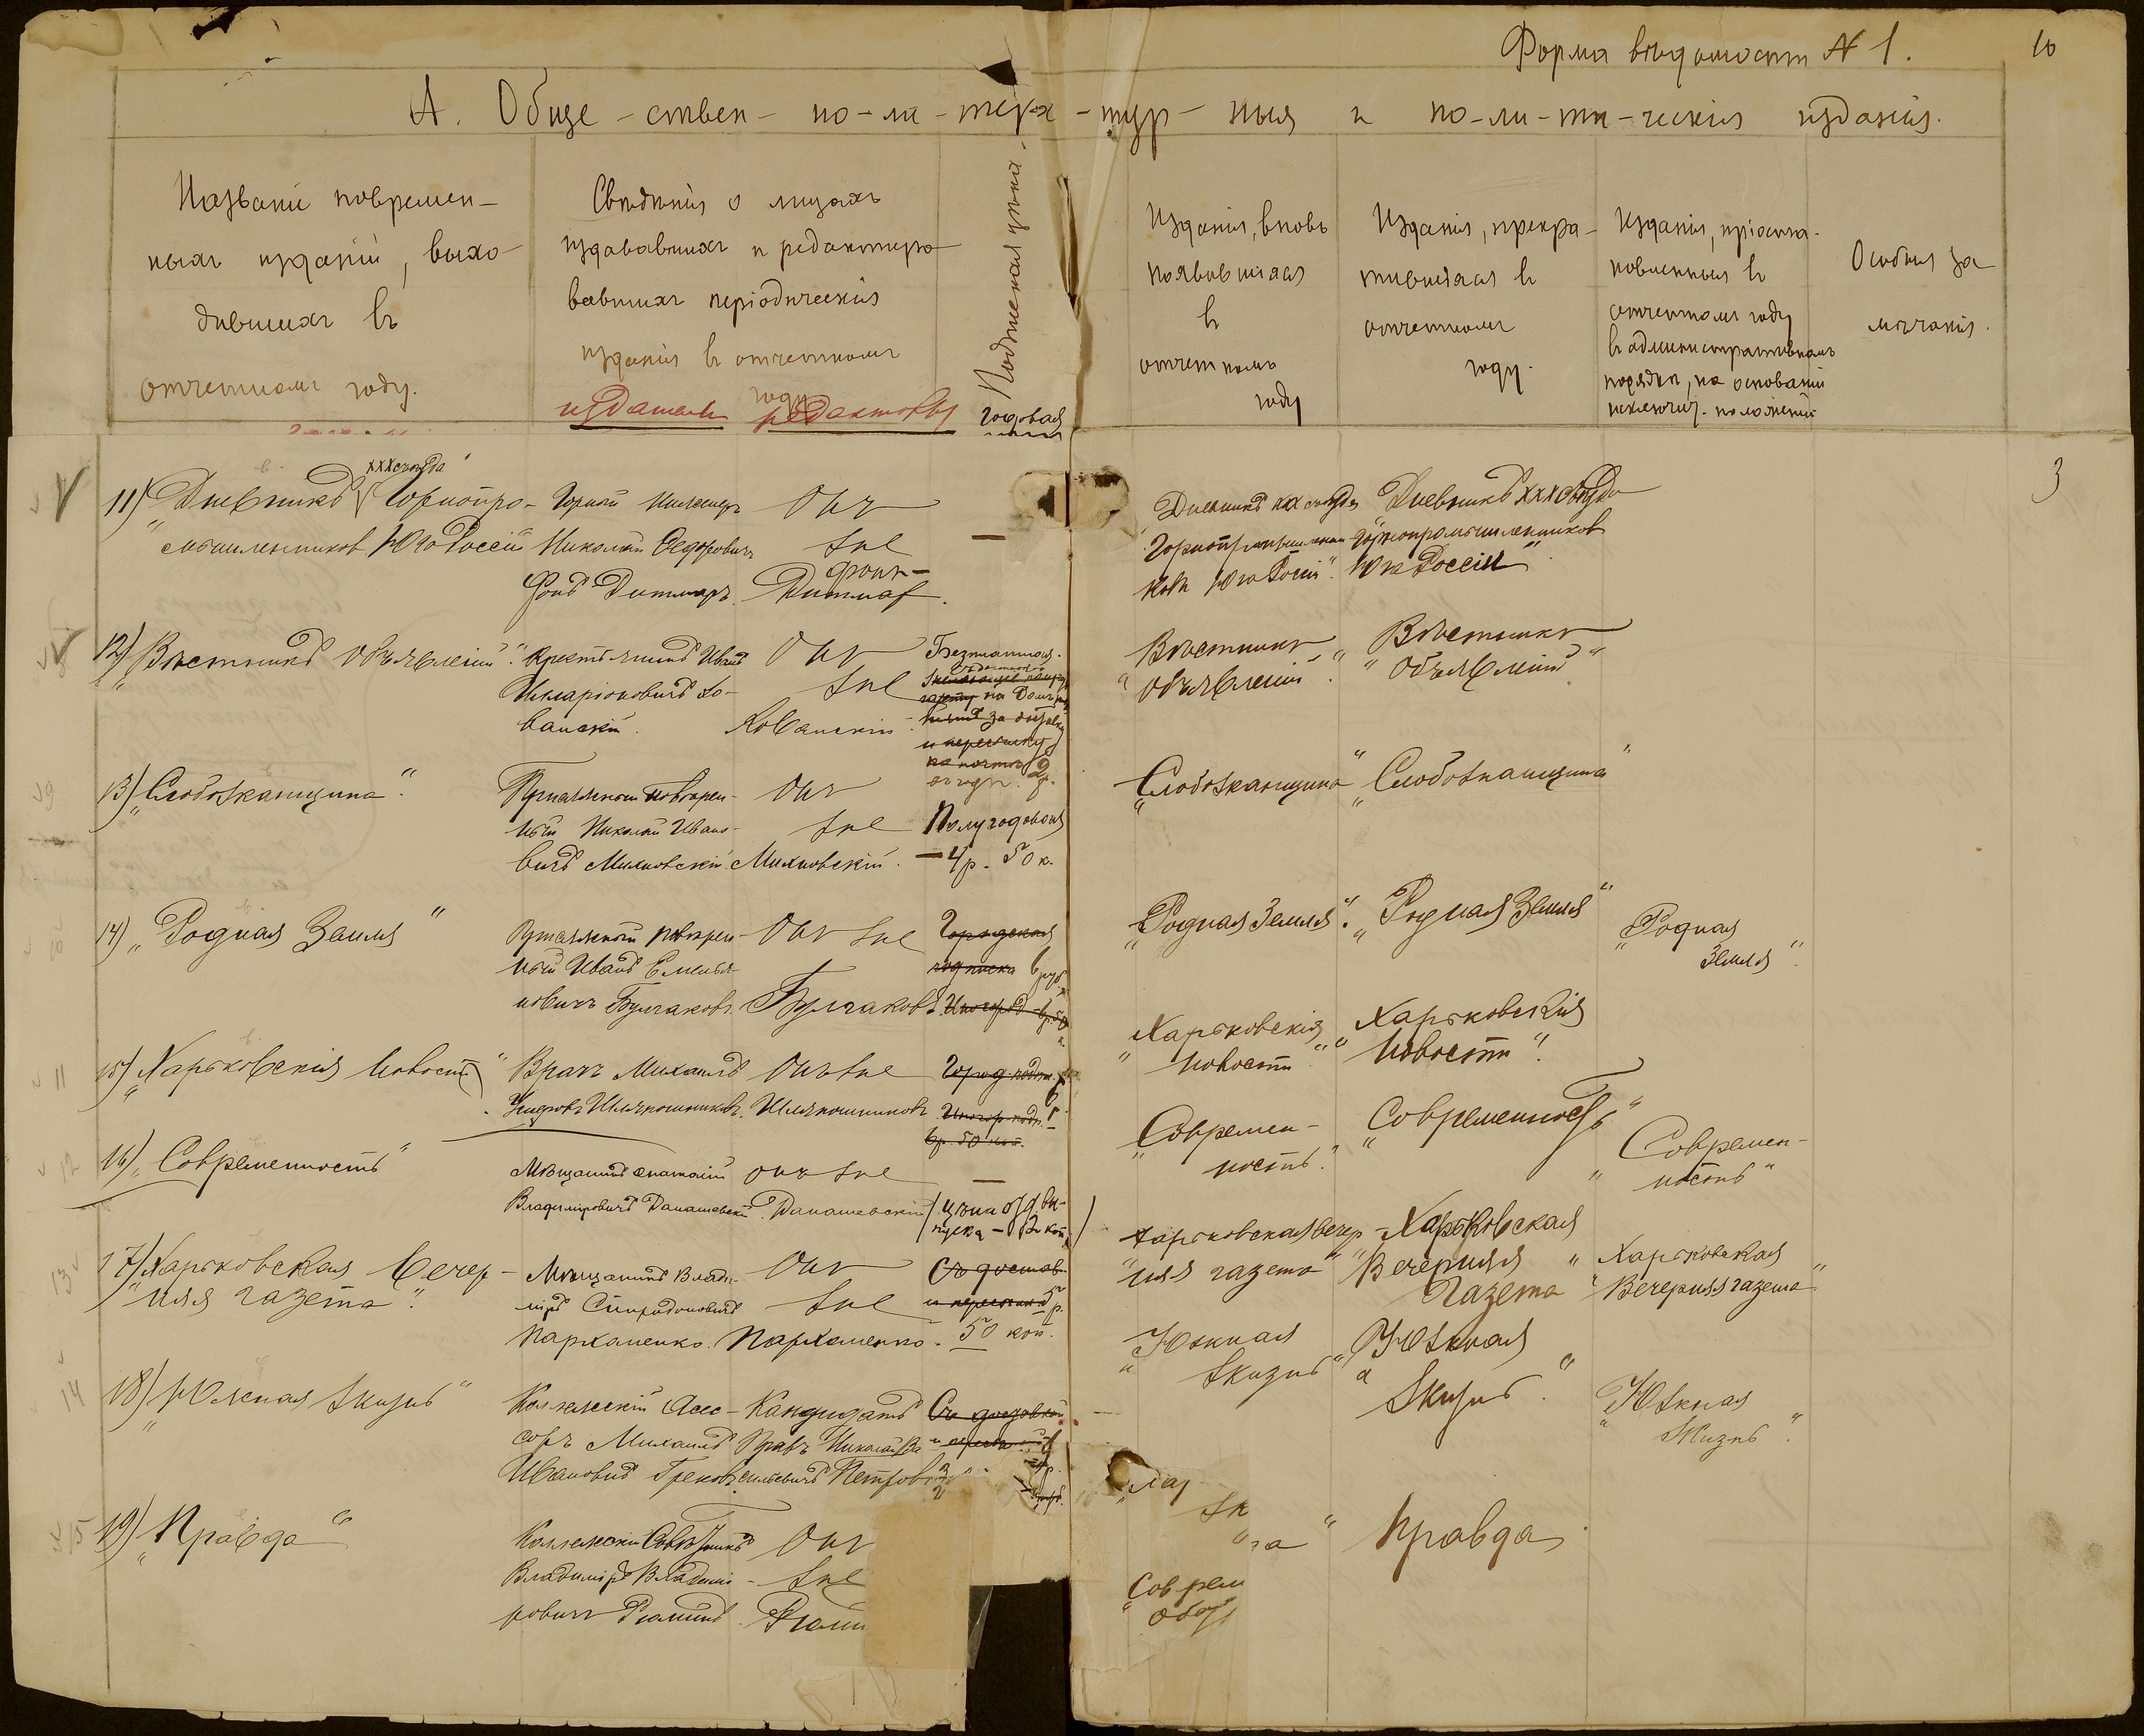 Форма вѣдомости № 1.
10
А. Обще-ствен-но-ли-тера-тур-ныя и по-ли-ти-ческія изданія.
Названіе повремен-
ныхъ изданій, выхо-
дившихъ въ
отчетномъ году.
Свѣдѣнія о лицахъ
издававшихъ и редактиро-
вавшихъ періодическія
изданія въ отчетномъ
году
издатели редакторы
Подписная цѣна.
годовая
Изданія, вновь
появившіяся
въ
отчетномъ
году
Изданія, прекра-
тившіяся въ
отчетномъ
году.
Изданія, пріоста-
новленныя въ
отчетномъ году
въ административномъ
порядкѣ, на основаніи
исключит. положеній
Особыя за
мѣчанія.
3
11) „Дневникъ XXX съѣзда Горнопро-
мышленниковъ Юга Россіи
Горный Инженеръ
Николай Федоровичъ
фонъ Дитмаръ.
Онъ
же
фонъ-
Дитмаръ.
—
„Дневникъ XXX съѣзда
Горнопромышленни
ковъ Юга Россіи".
Дневникъ XXX съѣзда
Горнопромышленниковъ
Юга Россіи".
12) „Вѣстникъ Объявленій".
Крестьянинъ Иванъ
Илларіоновичъ Хо-
ванскій.
Онъ
же
Хованскій
Безплатная.
на домъ
за
и пересылку
на почтѣ 2
въ годъ. р.
Вѣстникъ
„Объявленій".
„Вѣстникъ
Объявленій"
13) „Слобожанщина".
Присяжный повѣрен-
ный Николай Ивано-
вичъ Михновскій
Онъ
же
Михновскій.
Полугодовая
— 4 р. 50 к.
„Слобожанщина"
„Слобожанщина"
14) „Родная Земля"
Присяжный повѣрен-
ный Иванъ Емелья-
новичъ Булгаковъ.
Онъ же
Булгаковъ.
Городская
подписка 6 руб.
Иногород 6 р. 50
к.
„Родная Земля".
„Родная Земля"
„Родная
Земля".
15) „Харьковскія Новости"
Врачъ Михаилъ
Шляпошниковъ.
Онъ же
Шляпошниковъ
Город. подп.
6
Иногор. подп. р.
6 р. 50 коп.
„Харьковскія
Новости"
„Харьковскія
Новости".
16) „Современность"
Мѣщанинъ Анатолій
Владиміровичъ Данашевскій.
Онъ же
Данашевскій
—
(цѣна отд. вы-
пуска — 2 коп.)
„Современ-
ность".
„Современность"
„Современ-
ность"
17) „Харьковская Вечер-
няя газета".
Мѣщанинъ Влади-
міръ Спиридоновичъ
Пархоменко.
Онъ
же
Пархоменко.
Съ достав.
и пересылк. 5 р.
50 коп.
„Харьковская Вечер-
няя газета"
„Харьковская
Вечерняя
Газета"
„Харьковская
Вечерняя газета"
18) „Южная Жизнь"
Коллежскій Асес-
соръ Михаилъ
Ивановичъ Грековъ.
Кандидатъ
Правъ Николай Ва
сильевичъ Петровъ
Съ доставкой
„Южная
Жизнь"
„Южная
Жизнь".
„Южная
Жизнь".
19) „Правда"
Коллежскій Совѣтникъ
Владиміръ Владимі-
ровичъ Рюминъ.
Онъ
же
Рюми
Правда
„Соврем